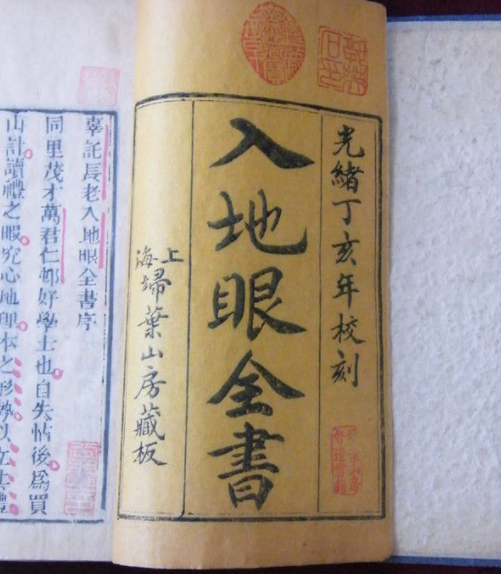 光緒丁亥年校刻
入地眼全書
上海埽葉山房藏板
辜託長老入地眼全書序
同里茂才萬君仁邨好學士也自失怙後為買
山計讀禮之暇究心地理本之形勢以立其體